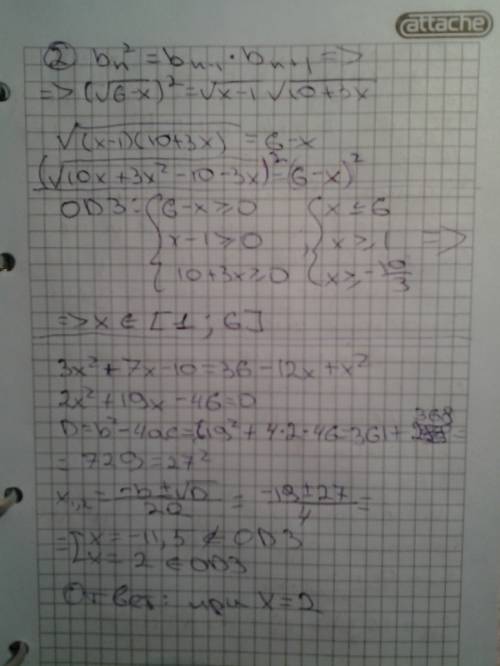 attache
② bₙ² = bₙ₋₁ · bₙ₊₁ =>
=> (√6-x)² = √x-1 √10+3x
√(x-1)(10+3x) = 6-x
(√10x+3x²-10-3x)² = (6-x)²
ОДЗ: { 6-x ≥ 0 { x ≤ 6
{ x-1 ≥ 0 , { x ≥ 1 =>
{ 10+3x ≥ 0 { x ≥ -10/3
=> x ∈ [1; 6]
3x²+7x-10=36-12x+x²
2x²+19x-46=0
D=b²-4ac=(19²+4·2·46=361+368=
=729=27²
x₁,₂ = -b±√D/2a = -19±27/4 =
=[x=-11,5 ∉ ОДЗ
x=2 ∈ ОДЗ
Ответ: при x=2